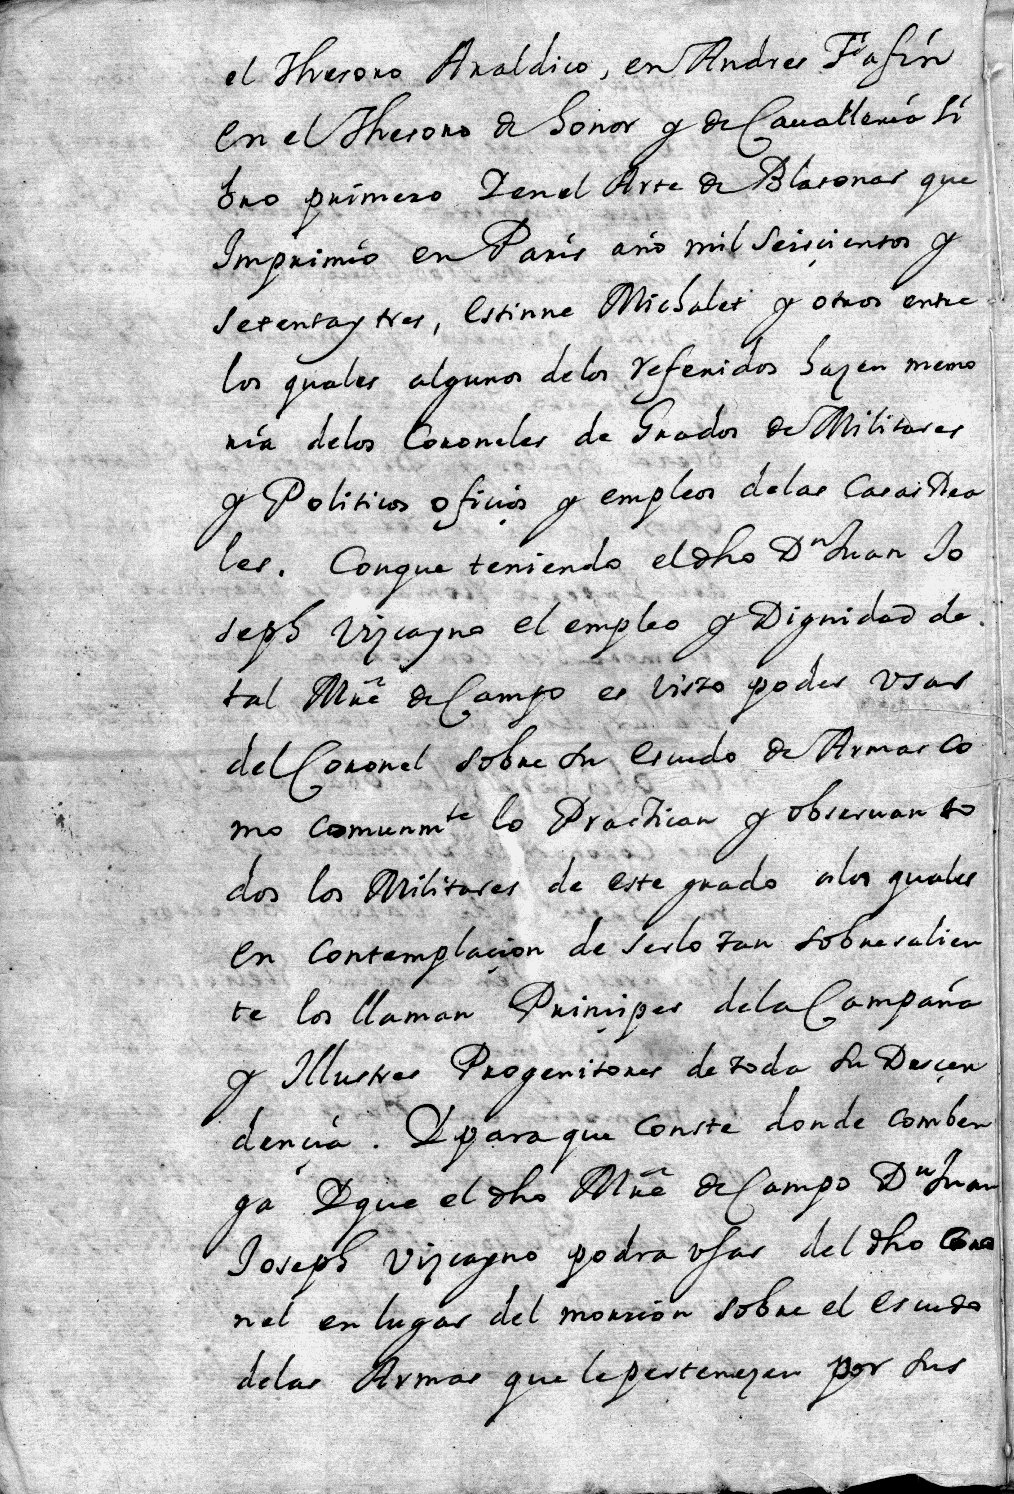 el Thesoro Araldico, en Andres Fafin
en el Thesoro de honor y de Cauallería li
bro primero Y en el Arte de Blasonar que
Imprimió en Paris año mil Seisçientos y
setentaytres, Estinne Michalet y otros entre
los quales algunos delos referidos hazen memo
ria delos Coroneles de Grados de Militares
y Politicos ofiçios y empleos delas Casas Rea
les. Conque teniendo el dho Dn Juan Jo
seph Vizcayno el empleo y Dignidad de
tal Mrẽ de Campo es visto poder vsar
del Coronel sobre su escudo de Armas co
mo comunmte lo Practican y observan to
dos los Militares de este grado alos quales
en contemplaçion de serlo tan sobresalien
te los llaman Prinçipes dela Campaña
y Illustres Progenitores de toda su Desçen
dençia. Y para que conste donde comben
ga Y que el dho Mrẽ de Campo Dn Juan
Joseph Vizcayno podra vsar del dho Coro
nel en lugar del morrion sobre el escudo
delas Armas que le pertenezen por sus